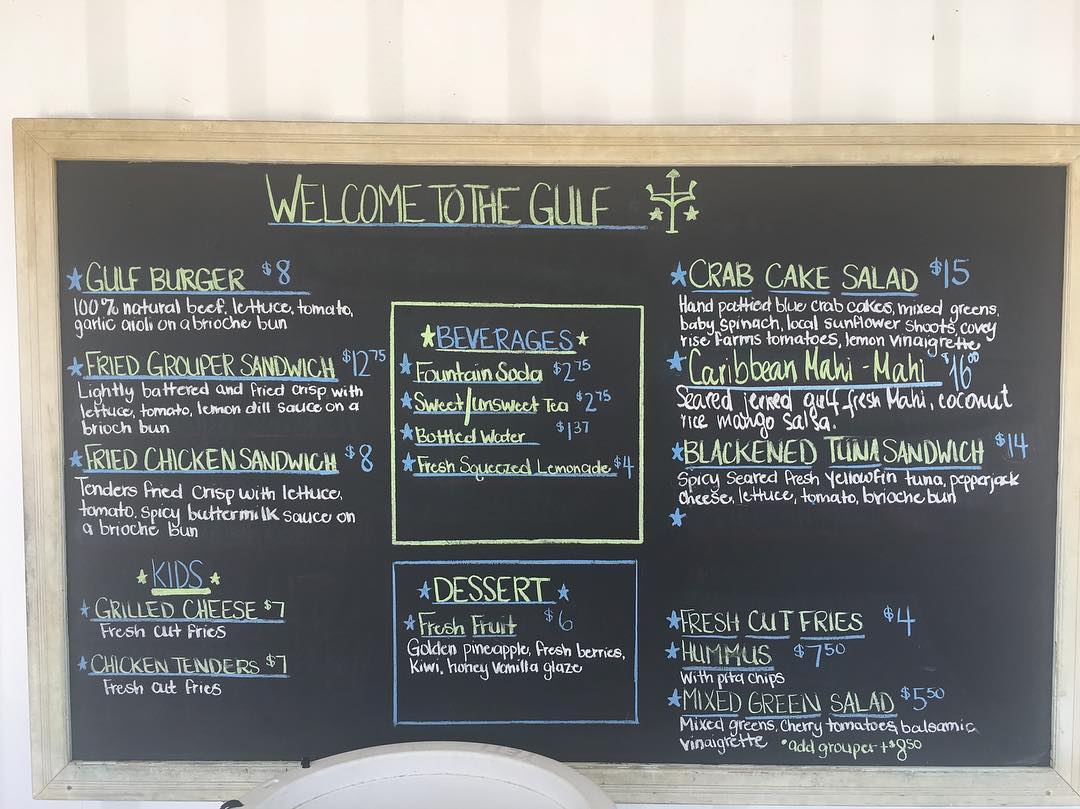 WELCOME TO THE GULF
GULF BURGER $8
100% natural beef, lettuce, tomato,
garlic aioli on a brioche bun
FRIED GROUPER SANDWICH $12 75
Lightly battered and fried crisp with
lettuce, tomato, lemon dill sauce on a
brioch bun
FRIED CHICKEN SANDWICH $8
Tenders fried crisp with lettuce,
tomato, spicy buttermilk sauce on
a brioche bun
KIDS
GRILLED CHEESE $7
Fresh cut fries
CHICKEN TENDERS $7
Fresh cut fries
BEVERAGES
Fountain Soda $2 75
Sweet/Unsweet Tea $2 75
Bottled Water $1 37
Fresh Squeezed Lemonade $4
DESSERT
Fresh Fruit $6
Golden pineapple, fresh berries,
Kiwi, honey vanilla glaze
CRAB CAKE SALAD $15
Hand pattied blue crab cakes, mixed greens,
baby spinach, local sunflower shoots, covey
rise farms tomatoes, lemon vinaigrette
Caribbean Mahi-Mahi $16 00
Seared jerked gulf fresh Mahi, coconut
rice mango salsa.
BLACKENED TUNA SANDWICH $14
Spicy seared fresh yellowfin tuna, pepperjack
cheese, lettuce, tomato, brioche bun
FRESH CUT FRIES $4
HUMMUS $7 50
with pita chips
MIXED GREEN SALAD $5 50
Mixed greens, cherry tomatoes, balsamic
vinaigrette *add grouper +$8 50